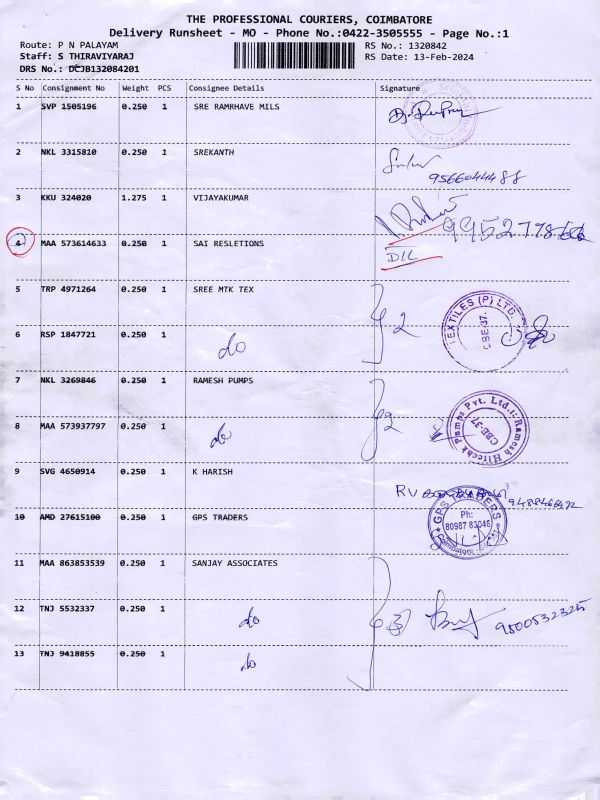 THE PROFESSIONAL COURIERS, COIMBATORE
Delivery Runsheet - MO - Phone No.:0422-3505555 - Page No.:1
Route: P N PALAYAM
RS No.: 1320842
Staff: S THIRAVIYARAJ
RS Date: 13-Feb-2024
DRS No.: DCJB132084201
S No Consignment No Weight PCS Consignee Details Signature
1 SVP 1505196 0.250 1 SRE RAMRHAVE MILS
2 NKL 3315810 0.250 1 SREKANTH
9566044488
3 KKU 324020 1.275 1 VIJAYAKUMAR
4 MAA 573614633 0.250 1 SAI RESLETIONS
D/L
5 TRP 4971264 0.250 1 SREE MTK TEX
2
TEXTILES (P) LTD.
CBE-37.
6 RSP 1847721 0.250 1 do
7 NKL 3269846 0.250 1 RAMESH PUMPS
2
Ramesh Hitech Pumps Pvt. Ltd.
CBE-37
8 MAA 573937797 0.250 1 do
9 SVG 4650914 0.250 1 K HARISH
10 AMD 27615100 0.250 1 GPS TRADERS
GPS TRADERS
Ph:
80987 83046
Coimbatore
11 MAA 863853539 0.250 1 SANJAY ASSOCIATES
12 TNJ 5532337 0.250 1 do
3
9500532325
13 TNJ 9418855 0.250 1 do